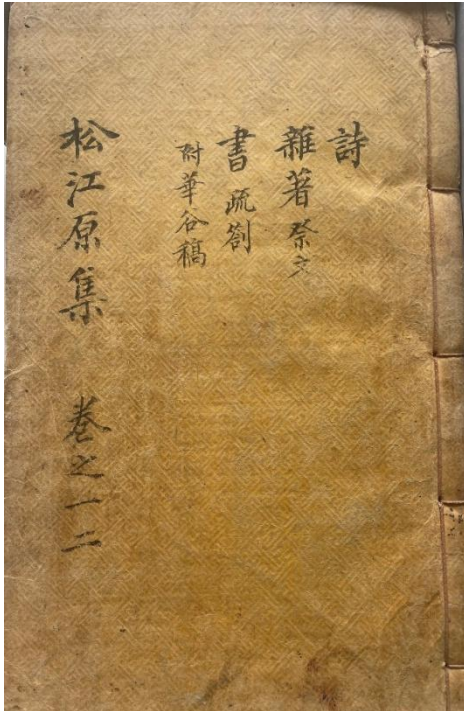 詩
雜著 祭文
書 疏劄
附華谷稿
松江原集 卷之一二